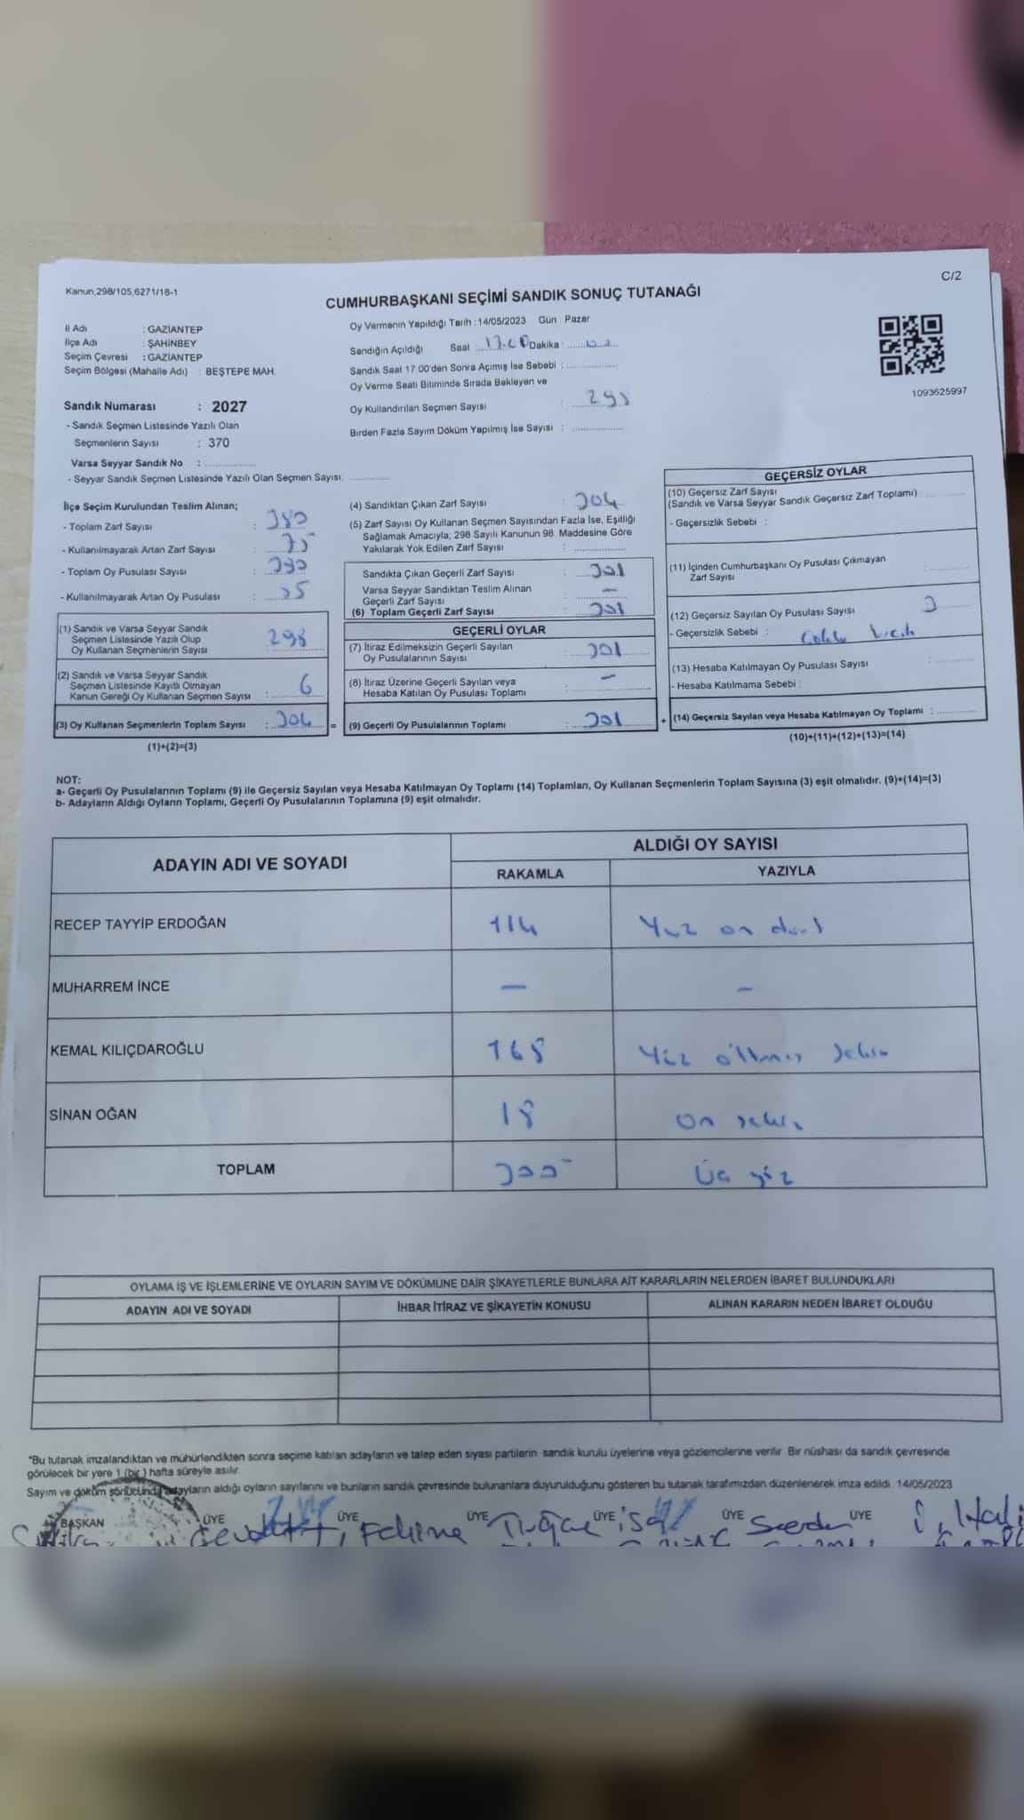 C/2
Kanun,298/105,6271/16-1
CUMHURBAŞKANI SEÇİMİ SANDIK SONUÇ TUTANAĞI
İl Adı : GAZİANTEP
İlçe Adı : ŞAHİNBEY
Seçim Çevresi : GAZİANTEP
Seçim Bölgesi (Mahalle Adı) : BEŞTEPE MAH.
Oy Vermenin Yapıldığı Tarih :14/05/2023 Gün Pazar
Sandığın Açıldığı Saat Dakika :
Sandık Saat 17:00'den Sonra Açımış İse Sebebi :
Oy Verme Saati Bitiminde Sırada Bekleyen ve
Oy Kullandırılan Seçmen Sayısı
Birden Fazla Sayım Döküm Yapılmış İse Sayısı :
1093625997
Sandık Numarası : 2027
- Sandık Seçmen Listesinde Yazılı Olan
Seçmenlerin Sayısı : 370
Varsa Seyyar Sandık No :
- Seyyar Sandık Seçmen Listesinde Yazılı Olan Seçmen Sayısı
İlçe Seçim Kurulundan Teslim Alınan;
- Toplam Zarf Sayısı : 380
- Kullanılmayarak Artan Zarf Sayısı : 75
- Toplam Oy Pusulası Sayısı :
- Kullanılmayarak Artan Oy Pusulası :
(1) Sandık ve Varsa Seyyar Sandık
Seçmen Listesinde Yazılı Olup
Oy Kullanan Seçmenlerin Sayısı : 298
(2) Sandık ve Varsa Seyyar Sandık
Seçmen Listesinde Kayıtlı Olmayan
Kanun Gereği Oy Kullanan Seçmen Sayısı : 6
(3) Oy Kullanan Seçmenlerin Toplam Sayısı : 304 =
(1)+(2)=(3)
(4) Sandıktan Çıkan Zarf Sayısı : 304
(5) Zarf Sayısı Oy Kullanan Seçmen Sayısından Fazla İse, Eşitliği
Sağlamak Amacıyla, 298 Sayılı Kanunun 98. Maddesine Göre
Yakılarak Yok Edilen Zarf Sayısı :
Sandıkta Çıkan Geçerli Zarf Sayısı : 301
Varsa Seyyar Sandıktan Teslim Alınan
Geçerli Zarf Sayısı : -
(6) Toplam Geçerli Zarf Sayısı : 301
GEÇERLİ OYLAR
(7) İtiraz Edilmeksizin Geçerli Sayılan
Oy Pusulalarının Sayısı : 301
(8) İtiraz Üzerine Geçerli Sayılan veya
Hesaba Katılan Oy Pusulası Toplamı : -
(9) Geçerli Oy Pusulalarının Toplamı : 301 +
GEÇERSİZ OYLAR
(10) Geçersiz Zarf Sayısı
(Sandık ve Varsa Seyyar Sandık Geçersiz Zarf Toplamı)
- Geçersizlik Sebebi :
(11) İçinden Cumhurbaşkanı Oy Pusulası Çıkmayan
Zarf Sayısı
(12) Geçersiz Sayılan Oy Pusulası Sayısı 3
- Geçersizlik Sebebi :
(13) Hesaba Katılmayan Oy Pusulası Sayısı
- Hesaba Katılmama Sebebi :
(14) Geçersiz Sayılan veya Hesaba Katılmayan Oy Toplamı :
(10)+(11)+(12)+(13)=(14)
NOT:
a- Geçerli Oy Pusulalarının Toplamı (9) ile Geçersiz Sayılan veya Hesaba Katılmayan Oy Toplamı (14) Toplamları, Oy Kullanan Seçmenlerin Toplam Sayısına (3) eşit olmalıdır. (9)+(14)=(3)
b- Adayların Aldığı Oyların Toplamı, Geçerli Oy Pusulalarının Toplamına (9) eşit olmalıdır.
ADAYIN ADI VE SOYADI
ALDIĞI OY SAYISI
RAKAMLA YAZIYLA
RECEP TAYYİP ERDOĞAN 114 Yüz on dört
MUHARREM İNCE - -
KEMAL KILIÇDAROĞLU 168 Yüz altmış sekiz
SİNAN OĞAN 18 On sekiz
TOPLAM 300 Üç yüz
OYLAMA İŞ VE İŞLEMLERİNE VE OYLARIN SAYIM VE DÖKÜMÜNE DAİR ŞİKAYETLERLE BUNLARA AİT KARARLARIN NELERDEN İBARET BULUNDUKLARI
ADAYIN ADI VE SOYADI İHBAR İTİRAZ VE ŞİKAYETİN KONUSU ALINAN KARARIN NEDEN İBARET OLDUĞU
*Bu tutanak imzalandıktan ve mühürlendikten sonra seçime katılan adayların ve talep eden siyasi partilerin sandık kurulu üyelerine veya gözlemcilerine verilir. Bir nüshası da sandık çevresinde
görülecek bir yere 1 (bir) hafta süreyle asılır.
Sayım ve döküm sonucunda adayların aldığı oyların sayılarını ve bunların sandık çevresinde bulunanlara duyurulduğunu gösteren bu tutanak tarafımızdan düzenlenerek imza edildi. 14/05/2023
BAŞKAN ÜYE ÜYE ÜYE ÜYE ÜYE ÜYE
Fatma Tuğçe isa